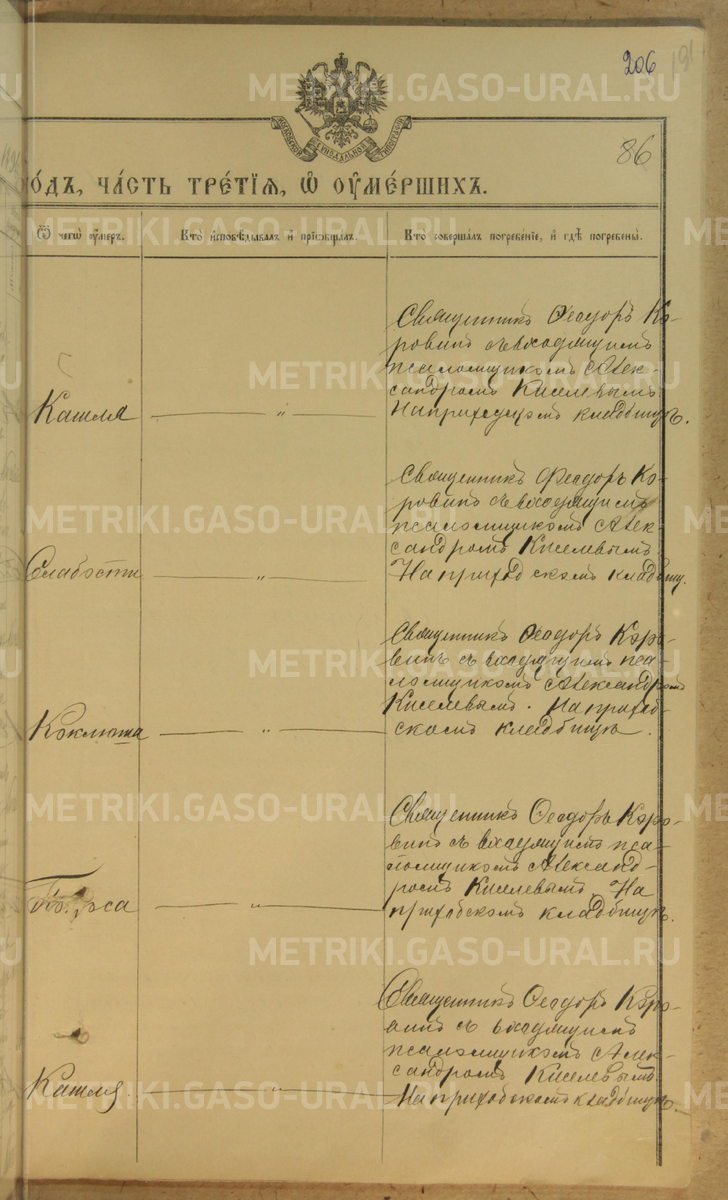 206
86
МОСКОВСКОЙ СѴНОДАЛЬНОЙ ТИПОГРАФІИ
го́дъ, ча́сть тре́тїѧ, ѡ оу҆ме́ршихъ.
Ѿ чегѡ̀ оу҆́меръ.
Кто̀ и҆сповѣ́дывалъ и҆ прїѡбща́лъ.
Кто̀ соверша́лъ погребе́нїе, и҆ гдѣ̀ погребены̀.
Кашля
"
Священникъ Ѳеодоръ Ко-
ровинъ съ
псаломщикомъ Алек-
сандромъ Киселевымъ.
На приходскомъ кладбищѣ.
Слабости
"
Священникъ Ѳеодоръ Ко-
ровинъ съ
псаломщикомъ Алек-
сандромъ Киселевымъ.
На приходскомъ кладбищ.
Коклюша
"
Священникъ Ѳеодоръ Коро-
винъ съ пса-
ломщикомъ Александромъ
Киселевымъ. На приход-
скомъ кладбищѣ.
"
Священникъ Ѳеодоръ Коро-
винъ съ пса-
ломщикомъ Александ-
ромъ Киселевымъ. На
приходскомъ кладбищѣ.
Кашля
"
Священникъ Ѳеодоръ Коро-
винъ съ
псаломщикомъ Алек-
сандромъ Киселевымъ.
На приходскомъ кладбищѣ.
METRIKI.GASO-URAL.RU